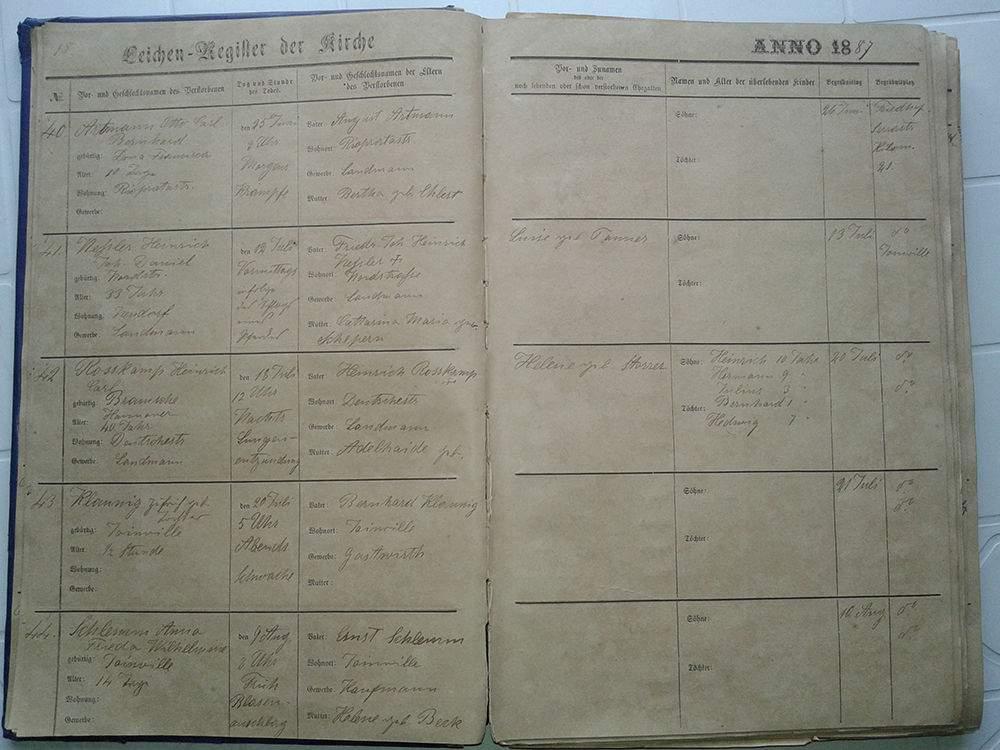 18
Leichen-Register der Kirche
№
Vor- und Geschlechtsnamen des Verstorbenen
Tag und Stunde des Todes.
Vor- und Geschlechtsnamen der Eltern des Verstorbenen
40
Artmann Otto Carl
Bernhard
gebürtig:
Alter: 10 Tage
Wohnung:
Gewerbe:
den 25 Juni
9 Uhr
Morgens
Krämpfe
Vater August Artmann
Wohnort:
Gewerbe: Landmann
Mutter: Bertha geb. Ehlert
41.
Nessler Heinrich
Joh. Daniel
gebürtig: Nordstr.
Alter: 33 Jahr
Wohnung:
Gewerbe: Landmann
den 12 Juli
Vormittags
infolge
Vater: Friedr. Joh. Heinrich
Nessler †
Wohnort: Nordstrasse
Gewerbe: Landmann
Mutter: Catharina Maria geb.
Schepern
42
Rosskamp Heinrich
Carl
gebürtig: Bramsche
Hannover
Alter: 40 Jahr
Wohnung: Deutschestr
Gewerbe: Landmann
den 18 Juli
12 Uhr
Nachts
Lungen-
entzündung
Vater Heinrich Rosskamp
Wohnort: Deutschestr
Gewerbe: Landmann
Mutter: Adelhaide geb.
43
Klaunig
Tochter
gebürtig: Joinville
Alter: ½ Stunde
Wohnung:
Gewerbe:
den 20 Juli
5 Uhr
Abends
Schwäche
Vater: Bernhard Klaunig
Wohnort: Joinville
Gewerbe: Gastwirth
Mutter:
44.
Schlemm Anna
Frieda Wilhelmine
gebürtig: Joinville
Alter: 14 Tage
Wohnung:
Gewerbe:
den 9 Aug
2 Uhr
Früh
Blasen-
ausschlag
Vater: Ernst Schlemm
Wohnort: Joinville
Gewerbe: Kaufmann
Mutter: Helene geb. Beck
ANNO 1887
Vor- und Zunamen
des oder der
noch lebenden oder schon verstorbenen Ehegatten
Namen und Alter der überlebenden Kinder
Begräbnißtag
Begräbnißplatz
Söhne:
Töchter:
26 Juni
Friedhof
21.
Luise geb. Tanner
Söhne:
Töchter:
13 Juli
do
Joinville
Helene geb. Storrer
Söhne: Heinrich 10 Jahr
Hermann 9 "
Julius 3 "
Bernhard 1 "
Töchter: Hedwig 7 "
20 Juli
do
do
Söhne:
Töchter:
21 Juli
do
do
Söhne:
Töchter:
10 Aug
do
do